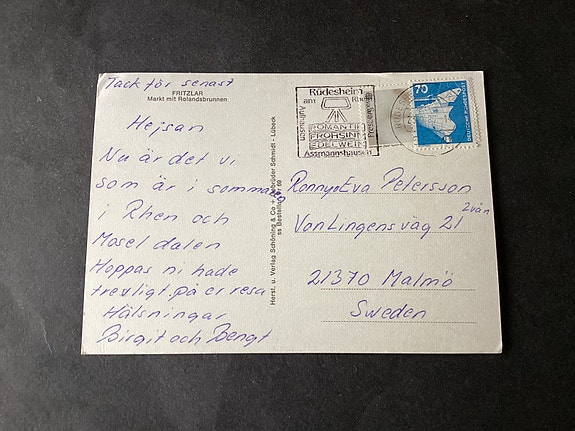 Tack för senast
FRITZLAR
Markt mit Rolandsbrunnen
Hejsan
Nu är det vi
som är i sommar
i Rhen och
Mosel dalen
Hoppas ni hade
trevligt på er resa
Hälsningar
Birgit och Bengt
Herst. u. Verlag Schöning & Co + Gebrüder Schmidt - Lübeck
Rüdesheim
am Rhein
Aulhausen
Presberg
ROMANTIK
FROHSINN
EDELWEIN
Assmannshausen
70
DEUTSCHE BUNDESPOST
Ronny o Eva Petersson
Van Lingens väg 21
2 vån
21370 Malmö
Sweden